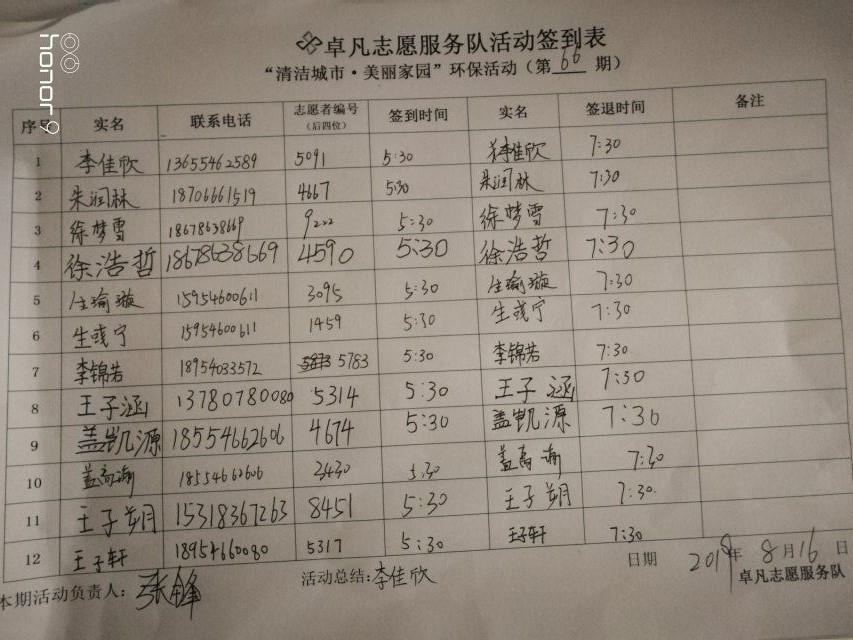 honor 9
卓凡志愿服务队活动签到表
“清洁城市·美丽家园”环保活动（第 66 期）
序号 实名 联系电话 志愿者编号（后四位） 签到时间 实名 签退时间 备注
1 李佳欣 13655462589 5091 5:30 李佳欣 7:30
2 朱润林 18706661519 4667 5:30 朱润林 7:30
3 徐梦雪 18678638669 9222 5:30 徐梦雪 7:30
4 徐浩哲 18678638669 4590 5:30 徐浩哲 7:30
5 生瑜璇 15954600611 3095 5:30 生瑜璇 7:30
6 生彧宁 15954600611 1459 5:30 生彧宁 7:30
7 李锦若 18954033572 5783 5:30 李锦若 7:30
8 王子涵 13780780080 5314 5:30 王子涵 7:30
9 盖凯源 18554662606 4674 5:30 盖凯源 7:30
10 盖高瀚 18554662606 2430 5:30 盖高瀚 7:30
11 王子朔 15318367263 8451 5:30 王子朔 7:30
12 王子轩 18954660080 5317 5:30 王子轩 7:30
本期活动负责人：张锋 活动总结：李佳欣 日期 2019年8月16日
卓凡志愿服务队